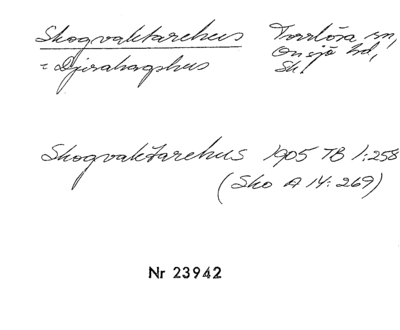 Skogvaktarehus Torrlösa sn,
= Djurahagshus Onsjö hd,
Sk.
Skogvaktarehus 1905 TB 1:258
(Sko A 14:269)
Nr 23942